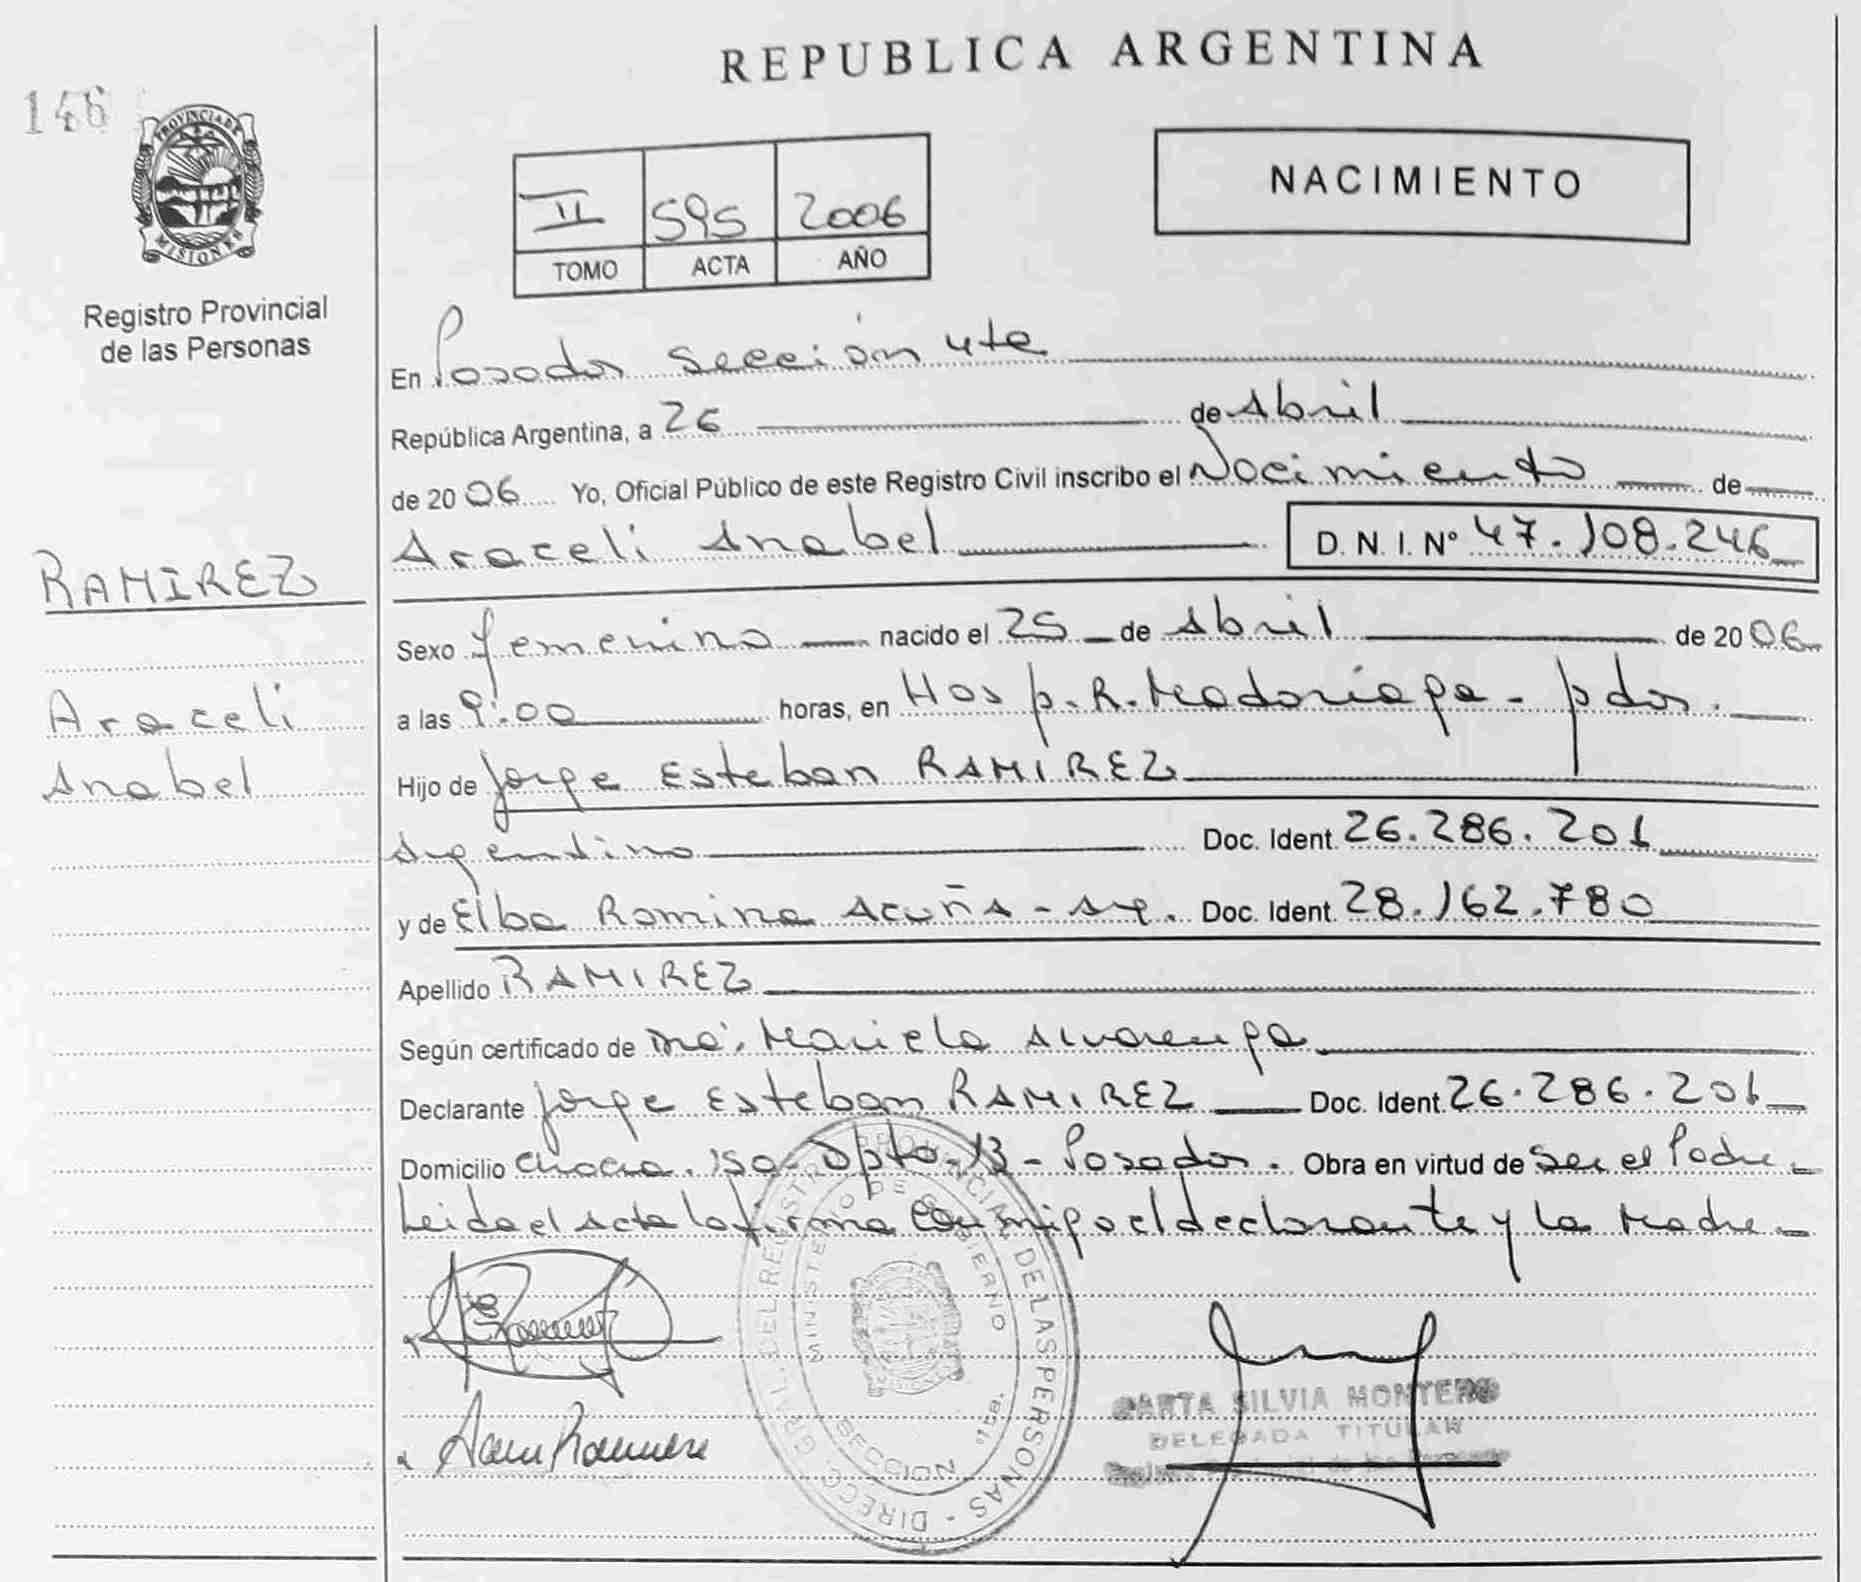 REPUBLICA ARGENTINA
146
PROVINCIA DE
MISIONES
Registro Provincial
de las Personas
II 595 2006
TOMO ACTA AÑO
NACIMIENTO
En Posadas Sección 4ta
República Argentina, a 26 de Abril
de 2006 Yo, Oficial Público de este Registro Civil inscribo el Nacimiento de
Araceli Anabel D.N.I. Nº 47.108.246
RAMIREZ
Araceli
Anabel
Sexo femenino nacido el 25 de Abril de 2006
a las 9:00 horas, en Hosp. R. Madariaga - pdas.
Hijo de Jorge Esteban RAMIREZ
Argentino Doc. Ident. 26.286.201
y de Elba Romina Acuña - Arg. Doc. Ident. 28.162.780
Apellido RAMIREZ
Según certificado de Mariela Alvarenga
Declarante Jorge Esteban RAMIREZ Doc. Ident. 26.286.201
Domicilio Chacra. 150 - Dpto - 13 - Posadas. Obra en virtud de Ser el Padre -
Leida el Acta la firma conmigo el declarante y la Madre -
DIRECC. GRAL. DEL REGISTRO PROVINCIAL DE LAS PERSONAS
MINISTERIO DE GOBIERNO
SECCION
SILVIA MONTERO
DELEGADA TITULAR